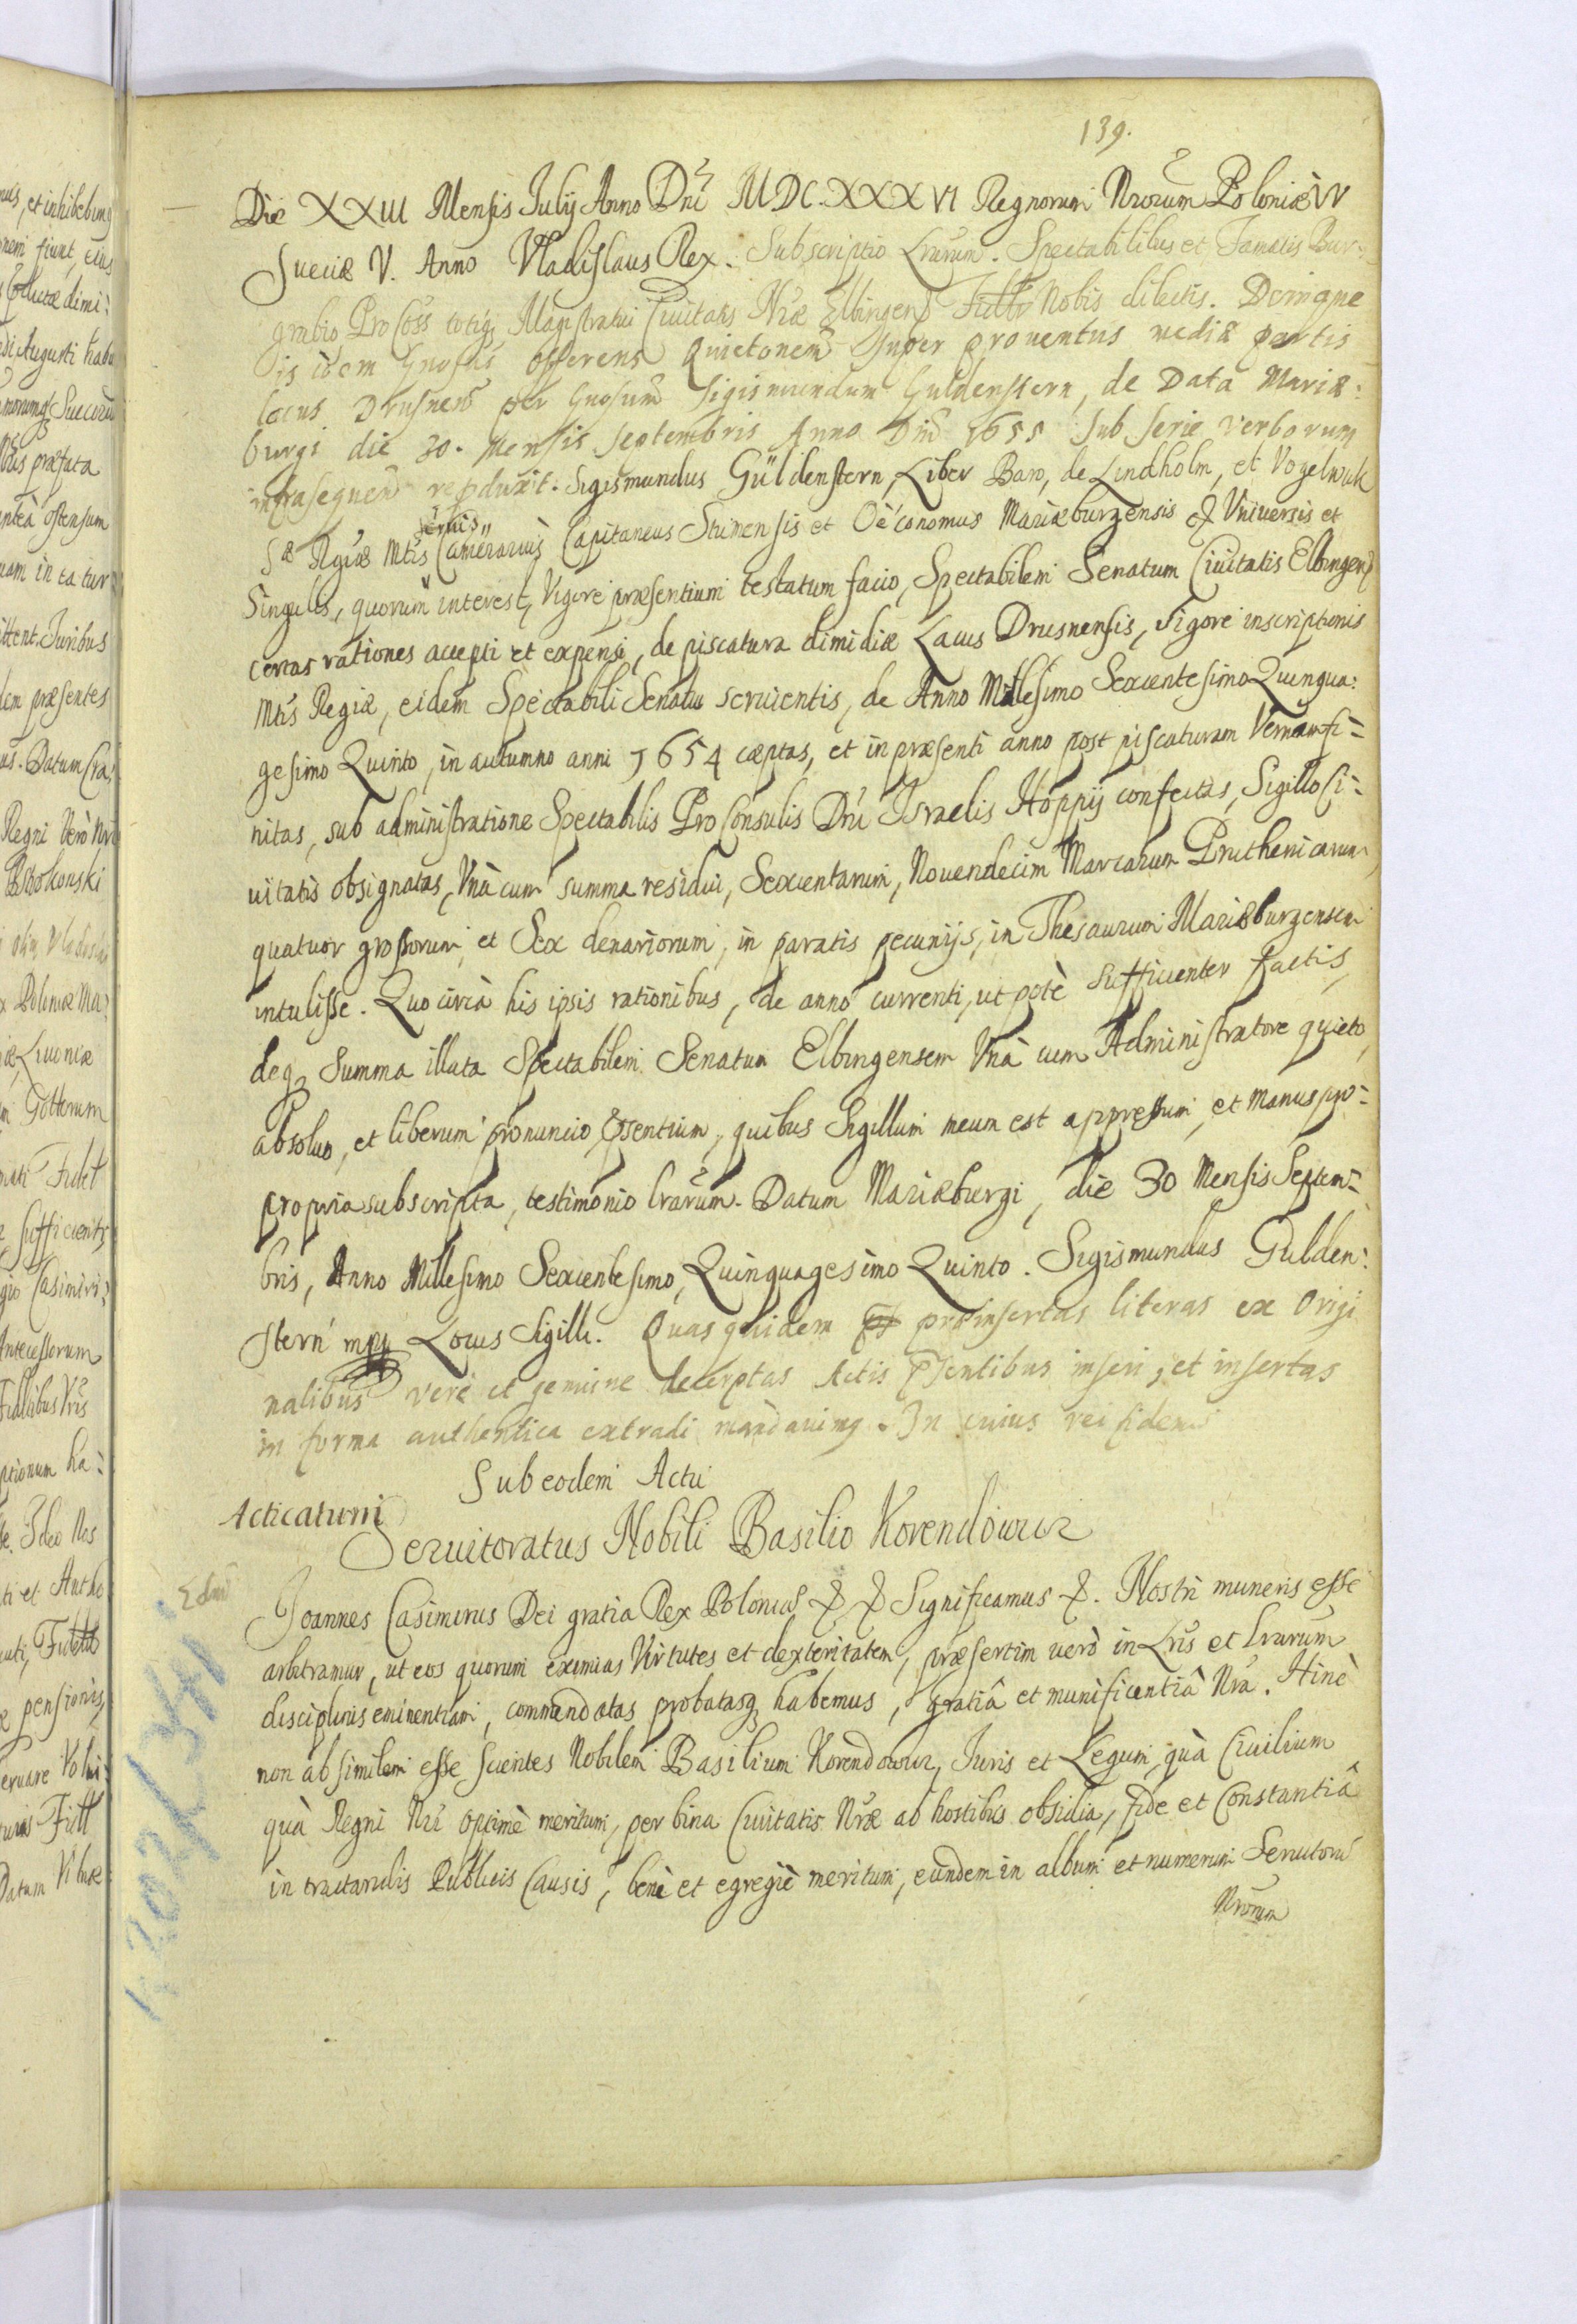 139.
Die XXIII Mensis Julij Anno Dni MDC.XXXVI Regnorum Nrorum Poloniæ IV
Sueciæ V. Anno Vladislaus Rex. Subscriptio Lrarum. Spectabilibus et Famatis Bur:
grabio Pro Coss totiq Magistratui Civitatis Nræ Elbingens Fidlbs Nobis dilectis. Denique
is idem Gnosus offerens Quietonem super proventus mediæ partis
lacus Drusnens per Gnosum Sigismundum Guldenstern, de Data Mariæ:
burgi die 30. Mensis Septembris Anno Dni 1655 Sub Serie verborum
infrasequen reproduxit. Sigismundus Güldenstern, Liber Baro, de Lindholm, et Vogelwik
Sæ Rgiæ Mtis Camerarius Capitaneus Stumensis et Oéconomus Mariæburgensis & Universis et
Singulis, quorum interest, Vigore præsentium testatum facio, Spectabilem Senatum Civitatis Elbingens
certas rationes accepti et expensi, de piscatura dimidiæ Lacus Drusnensis, Vigore inscriptionis
Mtis Regiæ, eidem Spectabili Senatui servientis, de Anno Millesimo Sexcentesimo Quinqua:
gesimo Quinto, in autumno anni 1654 cæptas, et in præsenti anno post piscaturam Vernam fi=
nitas, sub administratione Spectabilis Pro Consulis Dni Israelis Hoppij confectas, Sigillo Ci=
vitatis obsignatas, Vnà cum summa residui, Sexcentarum, Novendecim Marcarum Pruthenicarum,
quatuor grossorum, et Sex denariorum, in paratis pecunijs, in Thesaurum Mariæburgensem
intulisse. Quo circà his ipsis rationibus, de anno currenti, ut potè Sufficienter factis,
deq Summa illata Spectabilem Senatum Elbingensem Vnà cum Administratore quieto,
absoluo, et liberum pronuncio, Psentium, quibus Sigillum meum est appressum, et manus pro=
propria subscripta, testimonio lrarum. Datum Mariæburgi, die 30 Mensis Septem=
bris, Anno Millesimo Sexcentesimo, Quinquagesimo Quinto. Sigismundus Gulden:
stern mpp Locus Sigilli. Quas quidem præinsertas literas ex Origi
nalibus verè et genuine decerptas Actis Psentibus inseri, et insertas
in forma authentica extradi mandavimq. In cuius rei fidem
Sub eodem Actu
Acticatum
Servitoratus Nobili Basilio Korendowicz
Joannes Casimirus Dei gratia Rex Poloniæ & & Significamus &. Nostri muneris esse
arbitramur, ut eos quorum eximias Virtutes et dexteritatem, præsertim verò in Lris et lrarum
disciplinis eminentiam, commendatas probatasq habemus, gratiâ et munificentiâ Nra. Hinc
non absimilem esse scientes Nobilem Basilium Korendowicz, Juris et Legum, quà Civilium
quà Regni Nri optimè meritum, per bina Civitatis Nræ ab hostibus obsidia, fide et Constantiâ
in tractandis Publicis Causis, benè et egregiè meritum, eundem in album et numerum Servitoru
Nrorum